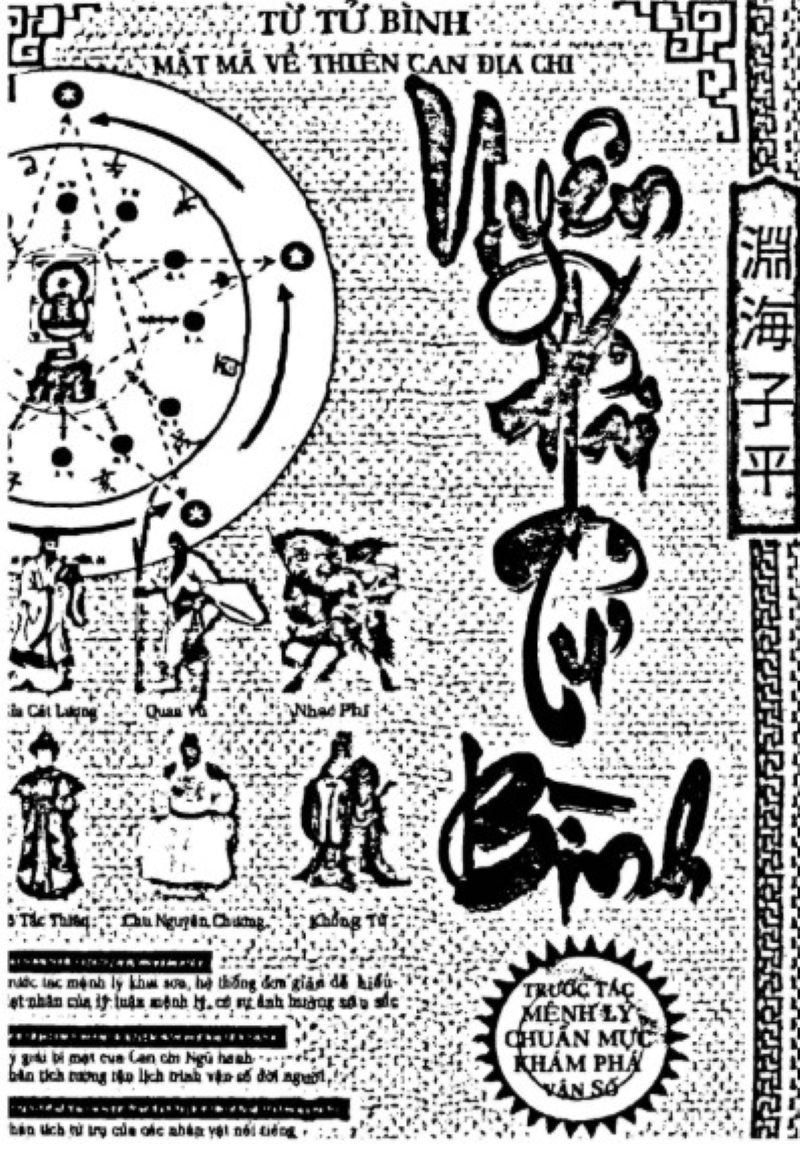 TỪ TỬ BÌNH
MẬT MÃ VỀ THIÊN CAN ĐỊA CHI
Uyên
Hải
Tử
Bình
淵海子平
Cát Lượng
Quan Vũ
Nhạc Phi
Tắc Thiên
Chu Nguyên Chương
Khổng Tử
tác mệnh lý khai sơn, hệ thống đơn giản dễ hiểu
nhân của lý luận mệnh lý, có sự ảnh hưởng sâu sắc
giải bí mật của Can chi Ngũ hành
tích tường tận lịch trình vận số đời người
tích tứ trụ của các nhân vật nổi tiếng
TRƯỚC TÁC
MỆNH LÝ
CHUẨN MỰC
KHÁM PHÁ
VẬN SỐ